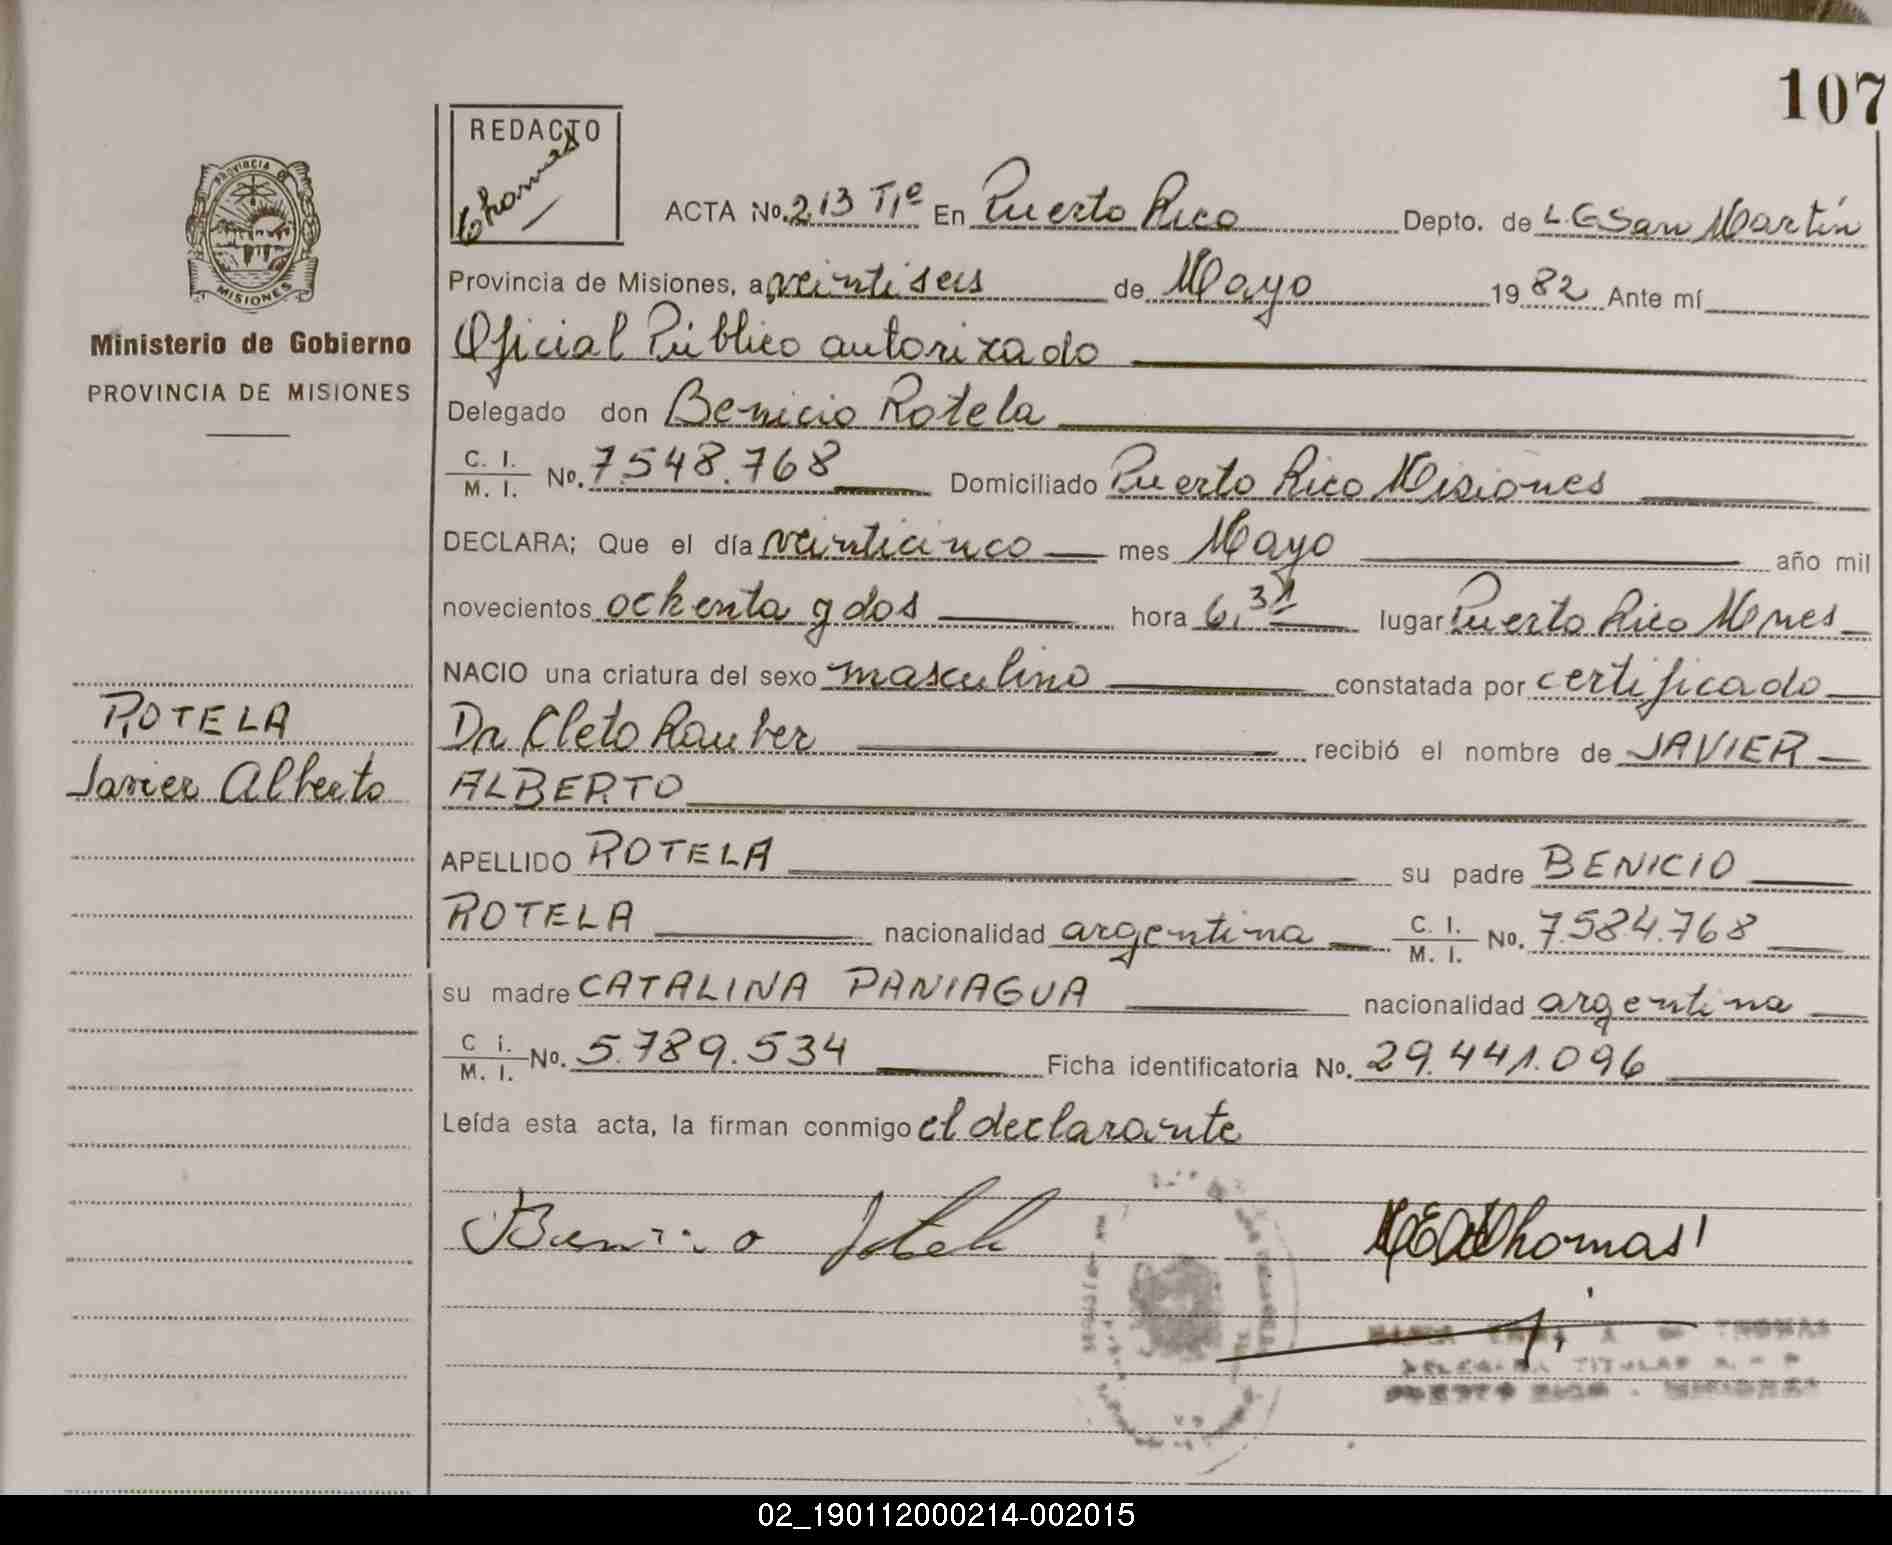 107
REDACTO
Thomas
PROVINCIA DE
MISIONES
Ministerio de Gobierno
PROVINCIA DE MISIONES
ACTA No. 213 TIº En Puerto Rico Depto. de L.G San Martín
Provincia de Misiones, a veintiseis de Mayo 1982 Ante mí
Oficial Público autorizado
Delegado don Benicio Rotela
C. I. / M. I. No. 7.548.768 Domiciliado Puerto Rico Misiones
DECLARA; Que el día veinticinco mes Mayo año mil
novecientos ochenta y dos hora 6, lugar Puerto Rico Mnes
NACIO una criatura del sexo masculino constatada por certificado
Dr Cleto Rauber recibió el nombre de JAVIER
ALBERTO
ROTELA
Javier Alberto
APELLIDO ROTELA su padre BENICIO
ROTELA nacionalidad argentina C. I. / M. I. No. 7.584.768
su madre CATALINA PANIAGUA nacionalidad argentina
C i. / M. I. No. 5.789.534 Ficha identificatoria No. 29.441.096
Leída esta acta, la firman conmigo el declarante
Benicio Rotela
Thomas
THOMAS
TITULAR
PUERTO RICO - MISIONES
02_190112000214-002015